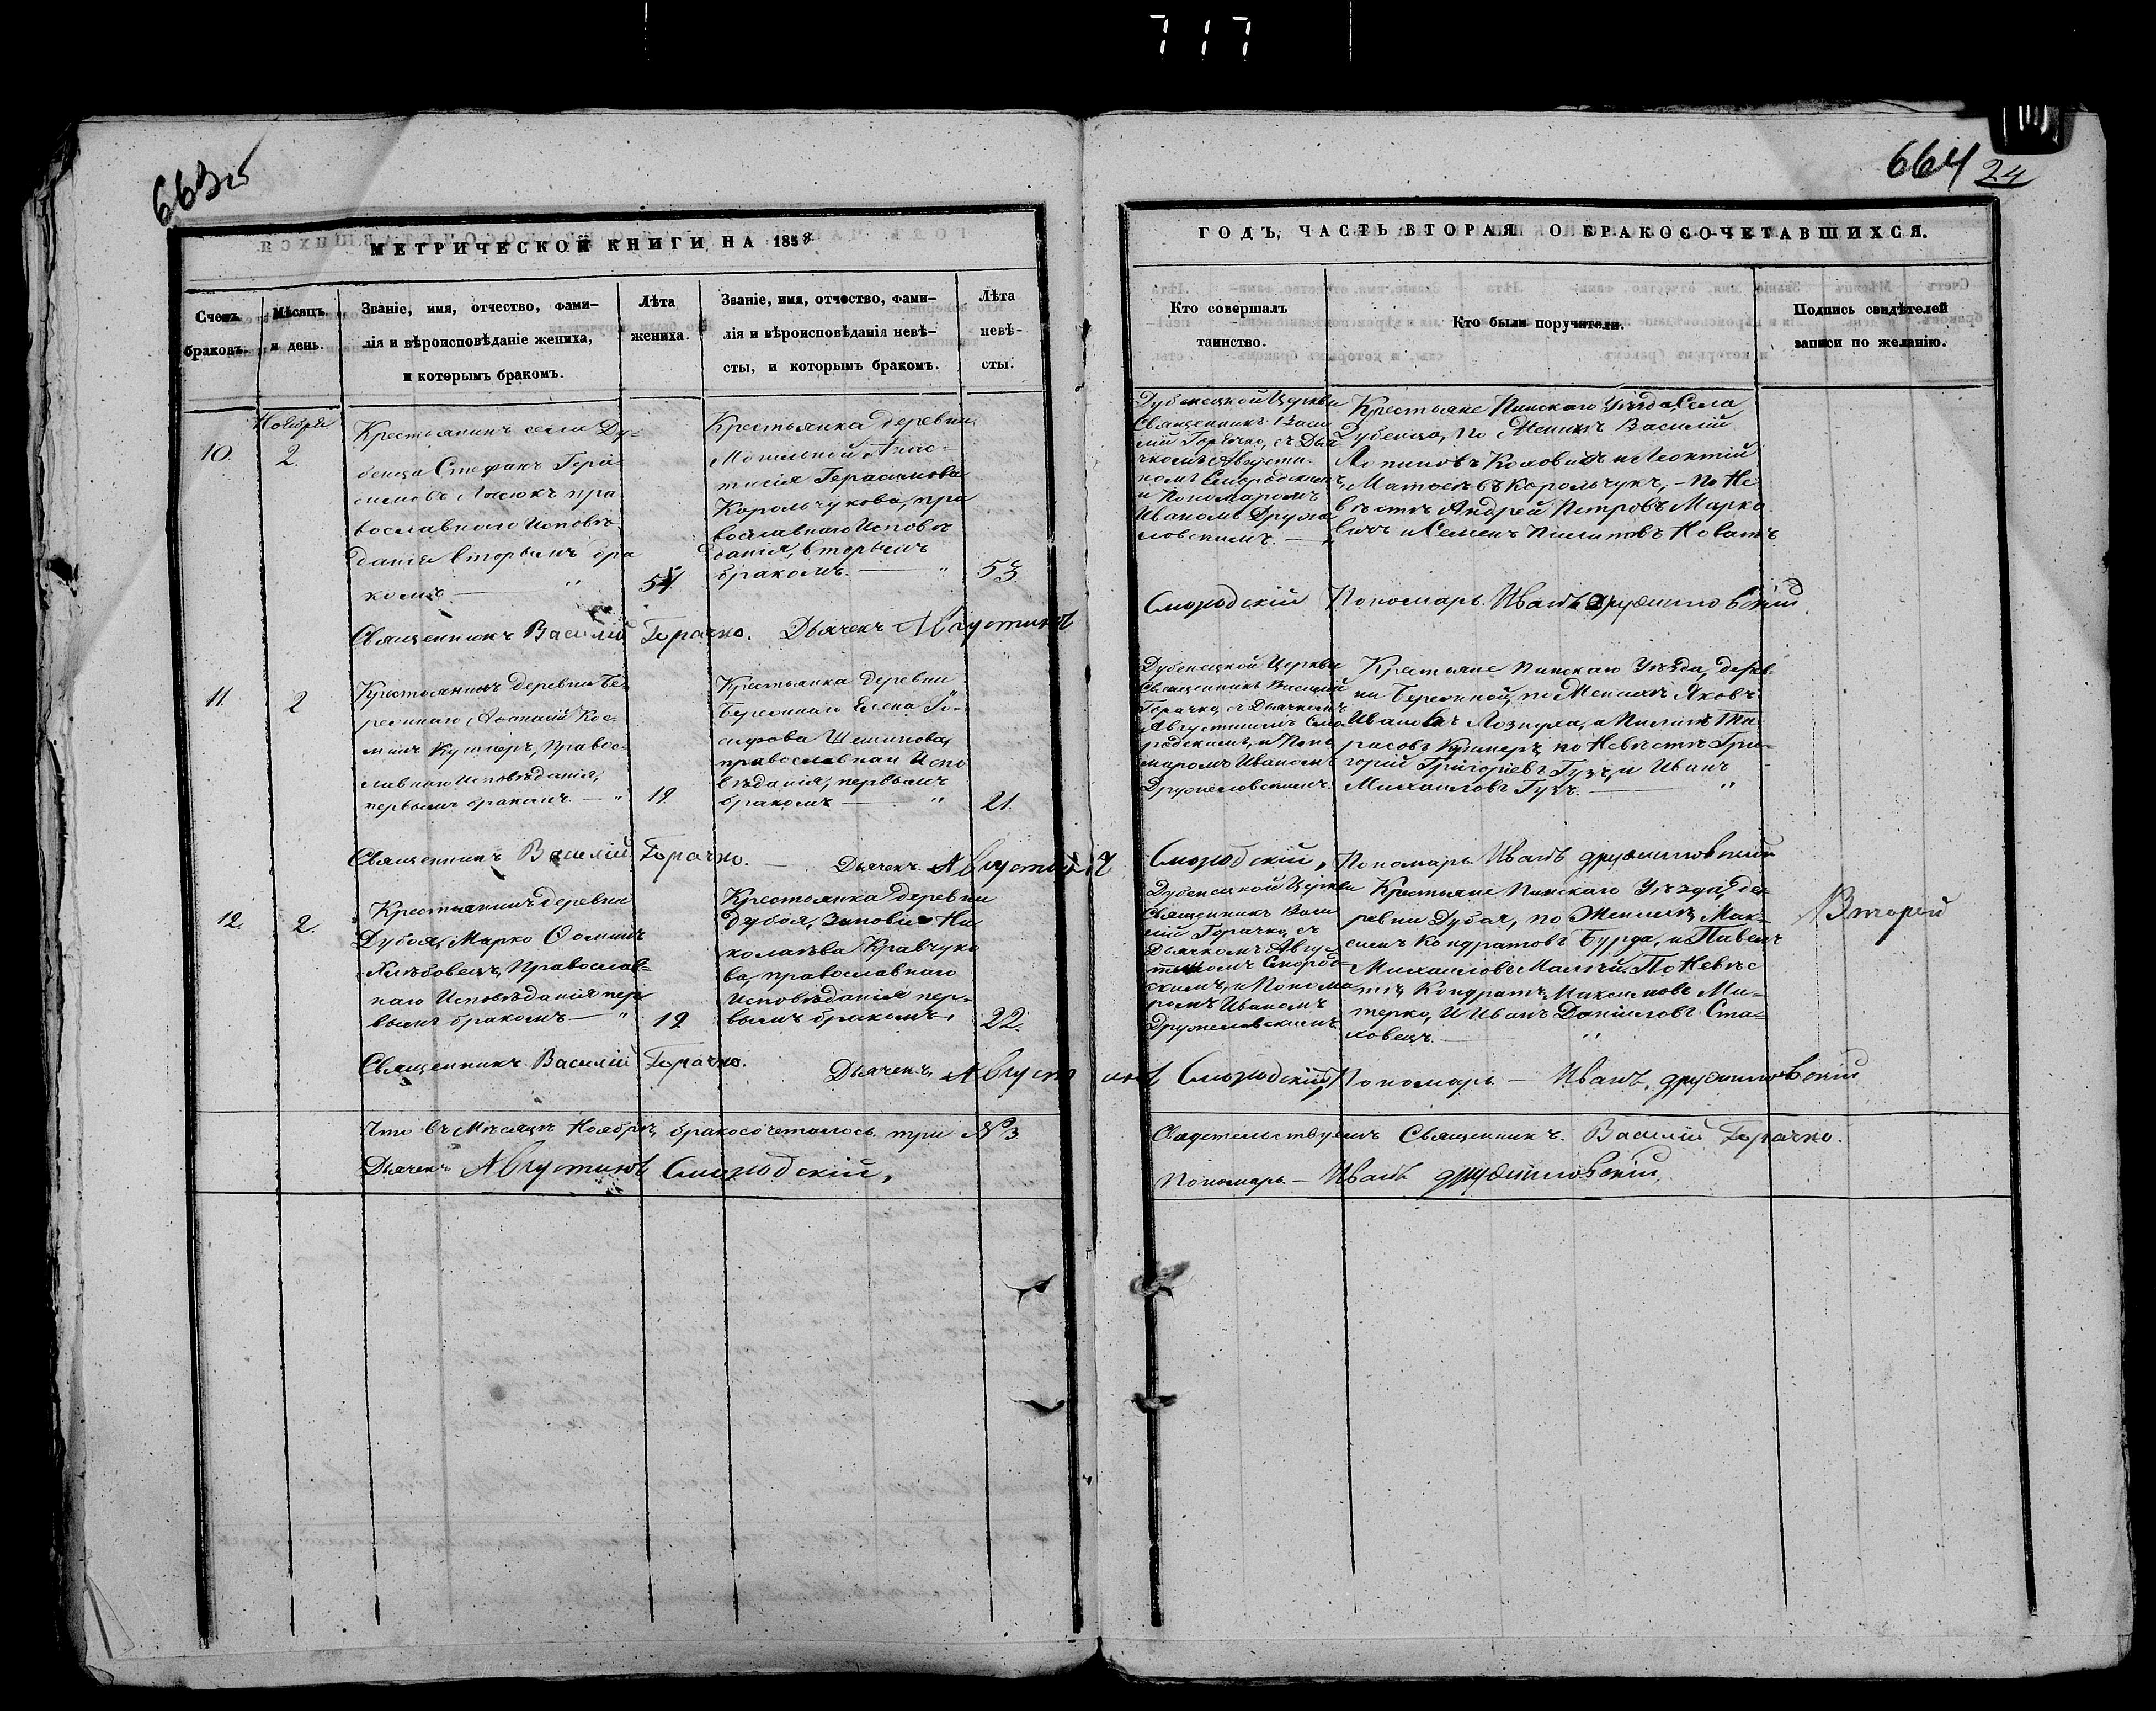 717
663
664 24
МЕТРИЧЕСКОЙ КНИГИ НА 1858
Счетъ браковъ.
Мѣсяцъ и день.
Званіе, имя, отчество, фами-
лія и вѣроисповѣданіе жениха,
и которымъ бракомъ.
Лѣта
жениха.
Званіе, имя, отчество, фами-
лія и вѣроисповѣданія невѣ-
сты, и которымъ бракомъ.
Лѣта
невѣ-
сты.
ГОДЪ, ЧАСТЬ ВТОРАЯ О БРАКОСОЧЕТАВШИХСЯ.
Кто совершалъ
таинство.
Кто были поручители.
Подпись свидѣтелей
записи по желанію.
10.
Ноября
2.
Крестьянинъ села Ду-
бенца Стефанъ Гера-
симовъ Ласюкъ пра
вославнаго Исповѣ
данія вторымъ бра
комъ. — "
Крестьянка деревни
Могильной Анас-
тасія Герасимова
Корольчукова, пра
вославнаго Исповѣ
данія, вторымъ
бракомъ. — "
53
Дубенецкой Церкви
Священникъ Васи
лій Горачко, съ Дья
чкомъ Августи-
номъ Смородскимъ,
и Пономаромъ
Иваномъ Друми
ловскимъ. —
Крестьяне Пинскаго Уѣзда Села
Дубенца, по Женихѣ Василій
Колович и Леонтій
Матвеевъ Корольчукъ, – по Не
вѣстѣ Андрей Петровъ Марко
вичъ и Семенъ Новакъ
Священникъ Василій Горачко. Дьячекъ Августинъ
Смородскій Пономарь Иванъ Дружиловскій.
11.
2
Крестьянинъ деревни Бе-
резиной Афанасій Кос-
минъ Кушнеръ, Правос-
славнаго Исповѣданія,
первымъ бракомъ. — "
19
Крестьянка деревни
Березиной Елена Іо-
сифова
православнаго Испо
вѣданія, первымъ
бракомъ — "
21.
Дубенецкой Церкви
Священникъ Василій
Горачко, съ Дьячкомъ
Августиномъ Смо
родскимъ, и Поно
маромъ Иваномъ
Дружиловскимъ.
Крестьяне Пинскаго Уѣзда, дерев-
ни Березиной, по Женихѣ Яковъ
Ивановъ Лознуха, и Та-
расовъ Кушнеръ, по Невѣстѣ Гри-
горій Григорьевъ Гузъ, и Иванъ
Михаиловъ Гузъ. — "
Священникъ Василій Горачко. — Дьячекъ Августинъ
Смородскій, Пономарь Иванъ Дружиловскій
12.
2.
Крестьянинъ деревни
Дубоя, Марко Ѳоминъ
Хлѣбовецъ, Православ-
наго Исповѣданія пер
вымъ бракомъ — "
19
Крестьянка деревни
Дубоя, Зиновія Ни
колаѣва Кравчуко
ва, православнаго
Исповѣданія пер-
вымъ бракомъ,
22.
Дубенецкой Церкви
Священникъ Васи
лій Горачко, съ
Дьячкомъ Авгус
тиномъ Смород-
скимъ, и Понома
ромъ Иваномъ
Дружиловскимъ
Крестьяне Пинскаго Уѣзда, де-
ревни Дубоя, по Женихѣ Мак-
симъ Кондратовъ Бурда, и Павелъ
Михаиловъ По Невѣс
тѣ, Кондратъ Максимовъ Ми-
терко, и Иванъ Даниловъ Ста-
ховецъ. — "
Священникъ Василій Горачко. Дьячекъ, Августинъ
Смородскій, Пономарь — Иванъ Дружиловскій
Что въ Мѣсяцѣ Ноябрѣ, бракосочеталось три № 3
Свидетельствуемъ Священникъ Василій Горачко.
Дьячекъ Августинъ Смородскій,
Пономарь — Иванъ Дружиловскій,